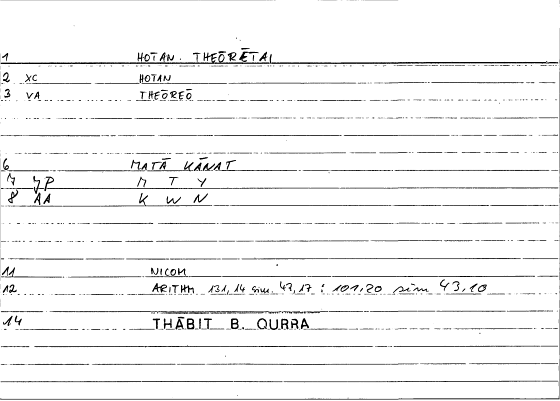 1 HOTAN THEŌRĒTAI
2 XC HOTAN
3 VA THEŌREŌ
6 MATĀ KĀNAT
7 YP M T Y
8 AA K W N
11 NICOM
12 ARITHM 131,14 sim. 47,17 : 101,20 sim 43,10
14 THĀBIT B. QURRA